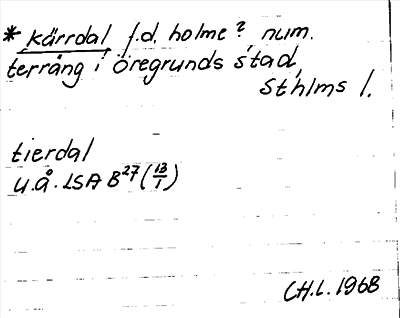 * kärrdal f.d. holme? num.
terräng i öregrunds stad,
Sthlms l.
tierdal
u.å. LSA B²⁷ (13/1)
CH.L. 1968